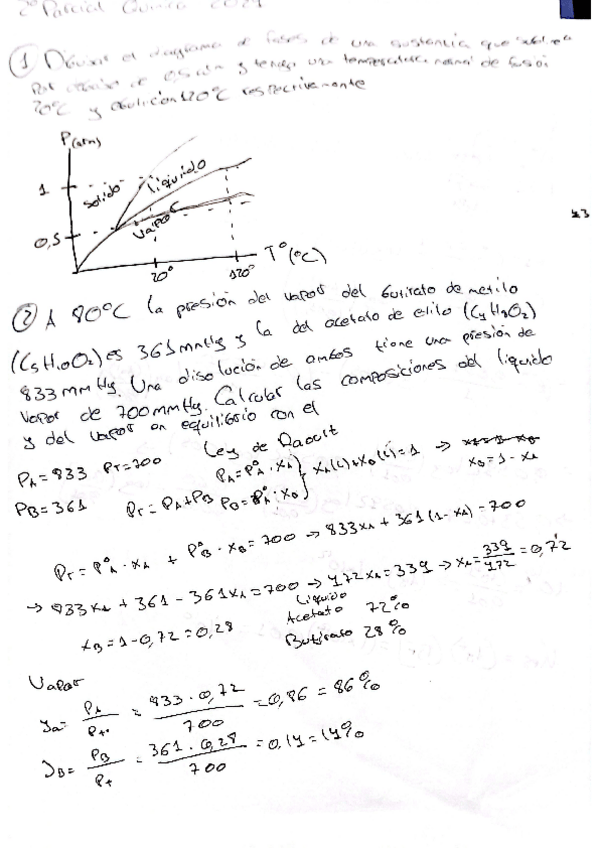 2º Parcial Química 2024
① Dibujar el diagrama de fases de una sustancia que sublima
por debajo de 0,5 atm y tenga una temperatura normal de fusión
70ºC y ebullición 120ºC respectivamente
P(atm)
1
solido
liquido
vapor
0,5
Tº(ºC)
120º
② A 80ºC la presión del vapor del butirato de metilo
(C5H10O2) es 361mmHg y la del acetato de etilo (C4H8O2)
833 mmHg. Una disolución de ambos tiene una presión de
vapor de 700mmHg. Calcular las composiciones del liquido
y del vapor en equilibrio con el
Ley de Raoult
PA=833 PT=700
PA=PºA·XA } XA(l)+XB(l)=1 →
XB=1-XA
PB=361 PT=PA+PB PB=PºA·XB
PT=PºA·XA + PºB·XB=700 → 833XA+361(1-XA)=700
→ 833XA+361-361XA=700 → 472XA=339 → XA=339/472=0,72
XB=1-0,72=0,28
Liquido
Acetato 72%
Butirato 28%
Vapor
ya= PA/PT = 833·0,72/700 =0,86=86%
yB= PB/Pt = 361·0,28/700 =0,14=14%